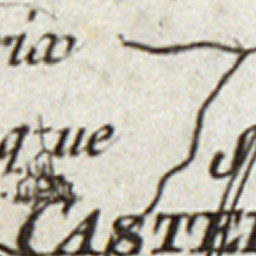 riæ
que
CASTE